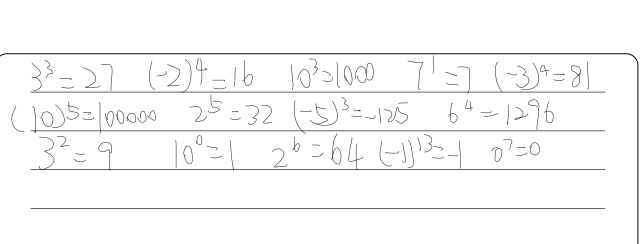 3³=27 (-2)⁴=16 10³=1000 7¹=7 (-3)⁴=81
(10)⁵=100000 2⁵=32 (-5)³=-125 6⁴=1296
3²=9 10⁰=1 2⁶=64 (-1)¹³=-1 0⁷=0